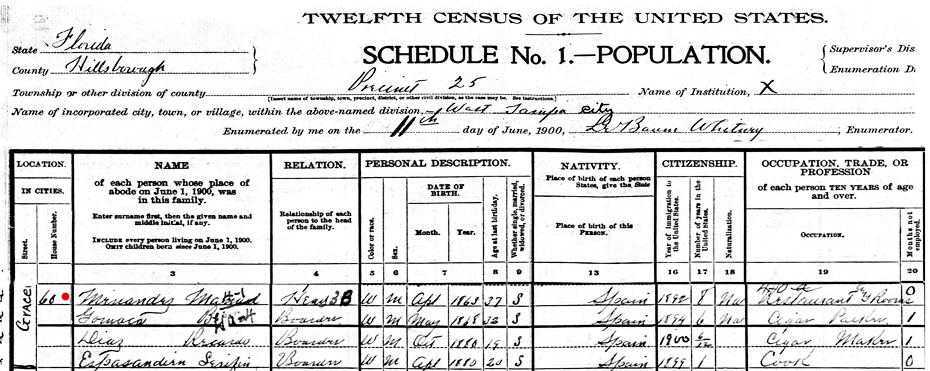 TWELFTH CENSUS OF THE UNITED STATES.
SCHEDULE No. 1.—POPULATION.
State Florida
County Hillsborough
Supervisor's Dis
Enumeration D
Township or other division of county Precinct 25
[Insert name of township, town, precinct, district, or other civil division, as the case may be. See instructions.]
Name of Institution, X
Name of incorporated city, town, or village, within the above-named division, West Tampa City
Enumerated by me on the 11th day of June, 1900, Whitney, Enumerator.
LOCATION.
IN CITIES.
Street.
House Number.
NAME
of each person whose place of
abode on June 1, 1900, was
in this family.
Enter surname first, then the given name and
middle initial, if any.
INCLUDE every person living on June 1, 1900.
OMIT children born since June 1, 1900.
RELATION.
Relationship of each
person to the head
of the family.
PERSONAL DESCRIPTION.
Color or race.
Sex.
DATE OF
BIRTH.
Month.
Year.
Age at last birthday.
Whether single, married,
widowed, or divorced.
NATIVITY.
Place of birth of each person
States, give the State
Place of birth of this
PERSON.
CITIZENSHIP.
Year of immigration to
the United States.
Number of years in the
United States.
Naturalization.
OCCUPATION, TRADE, OR
PROFESSION
of each person TEN YEARS of age
and over.
OCCUPATION.
Months not
employed.
3 4 5 6 7 8 9 13 16 17 18 19 20
Grace 60 Head 3B W M Apl 1863 37 S Spain 1892 8 Na Restaurant & Rooms 0
Boarder W M May 1868 32 S Spain 1894 6 Na Cigar Packer 1
Diaz Ricardo Boarder W M Oct 1880 19 S Spain 1900 Na Cigar Maker 1
Boarder W M Apl 1880 20 S Spain 1899 1 Cook 0